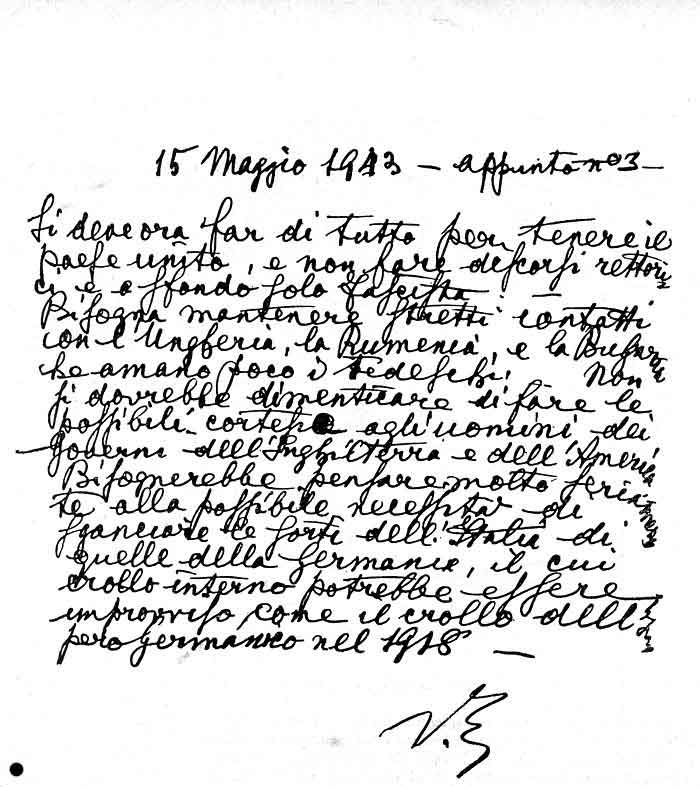 15 Maggio 1943 — appunto nº 3 —
Si deve ora far di tutto per tenere il
paese unito, e non fare discorsi rettori
ci e a sfondo solo fascista
Bisogna mantenere stretti contatti
con l'Ungheria, la Rumenia, e la Bulgaria
che amano poco i tedeschi. Non
si dovrebbe dimenticare di fare le
possibili cortesie agli uomini dei
governi dell'Inghilterra e dell'America
Bisognerebbe pensare molto seriamen
te alla possibile necessità di
sganciare le sorti dell'Italia di
quelle della Germania, il cui
crollo interno potrebbe essere
improvviso come il crollo dell'Im
pero germanico nel 1918 —
V.E